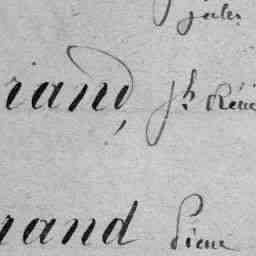 jules
riand, Jh René
rand Pierre